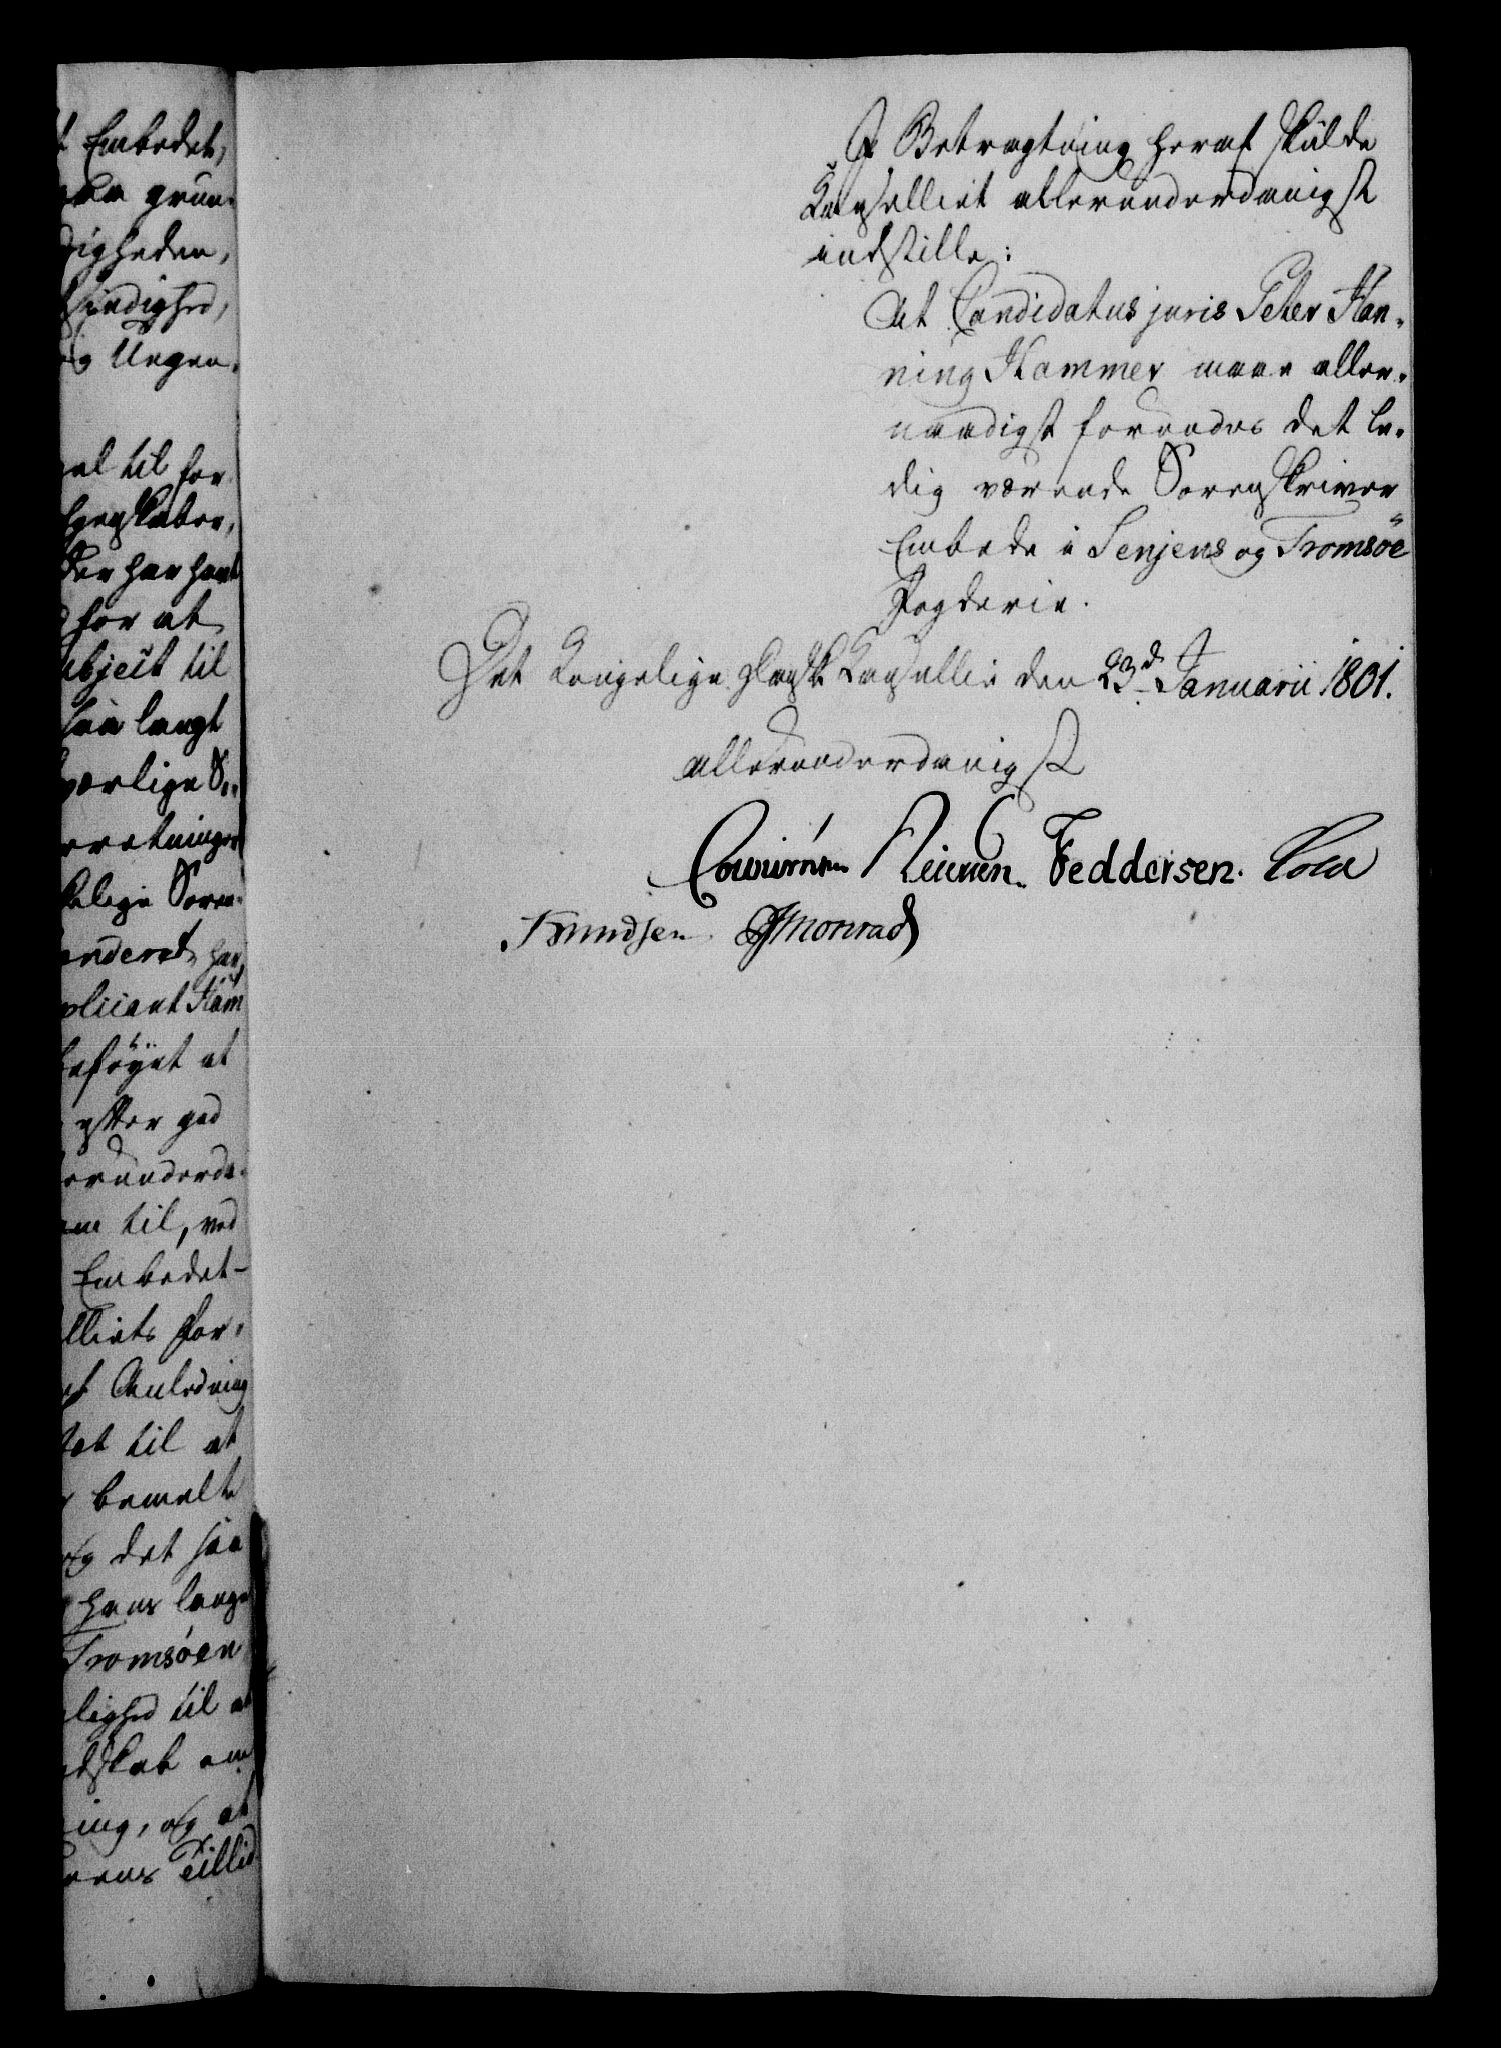 t Embedet,
grun-
digheden,
kyndighed,
og Ungen-
vel til for
Egenskaber,
der har havt
for at
ubject til
saa langt
værlige So-
rretninger
kelige Soren-
anderet har,
pplicant Ham
beføyet at
efter god
erunderda-
em til, ved
Embedet
lliets For-
af Anledning
tet til at
bemelte
og det saa
hans lange
Tromsöen
lighed til at
dskab om
ning, og at
rens Tillid
I Betragtning heraf skulde
Kanselliet allerunderdanigst
indstille:
At Candidatus juris Peter Han-
ning Hammer maae aller-
naadigst forundes det le-
dig værende Sorenskriver
Embede i Senjens og Tromsöe
Fogderie.
Det Kongelige Danske Kansellie den 23d. Januarii 1801.
allerunderdanigst
Feddersen. Cold
Knudsen JMonrad